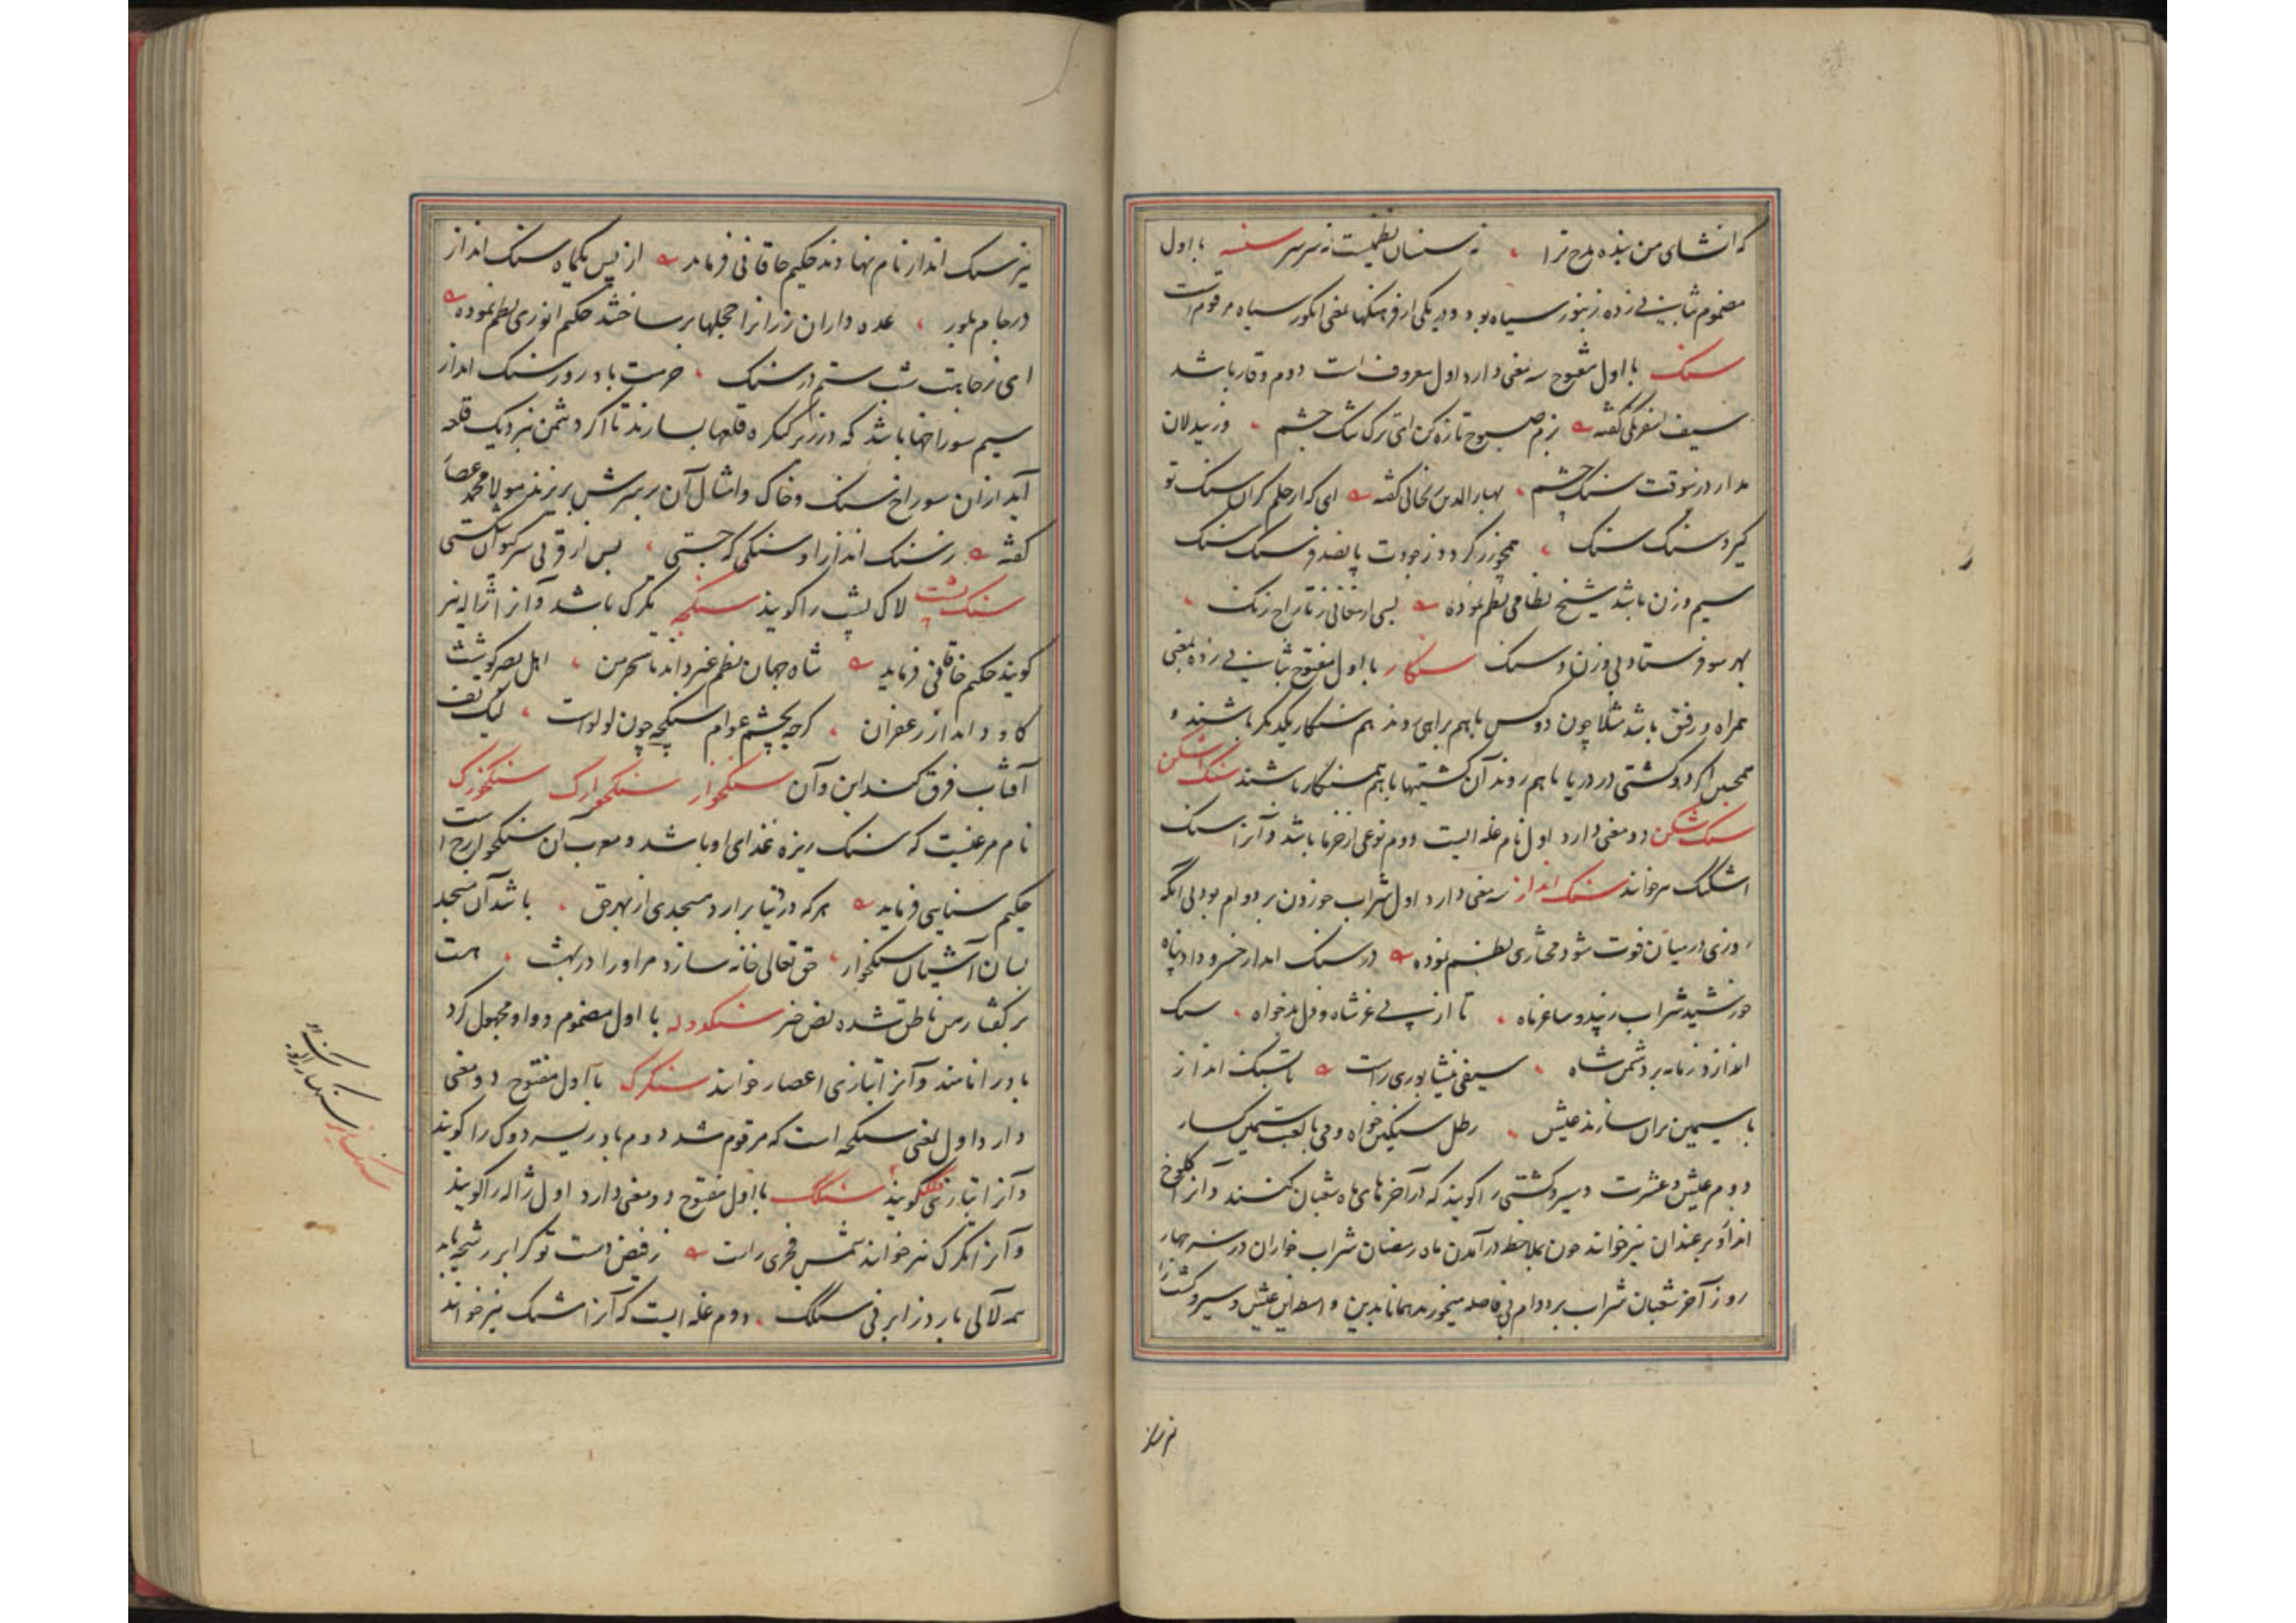 که انشای من بنده مدح ترا نه سنسان نظمیست نه سرسر سنسه با اول
مضموم بثانی زده زنبور سیاه بود و در یکی از فرهنکها بمعنی انکور سیاه مرقوم است
سنک با اول مفتوح سه معنی دارد اول معروف است دوم وقار باشد
سیف اسفرنکی کفته بزم صبوح تازه کن ای ترک شنک چشم وز بیدلان
مدار درین وقت سنک چشم بهار الدین کفته ای که از حلم کران سنک تو
کیرد سنک سنک همچو زر کردد ز جودت پانصد فرسنک سنک
سیم وزن باشد شیخ نظامی نظم نموده بسی ارمغانی ز تاراج زنک
بهر سو فرستاد بی وزن و سنک سنکار با اول مفتوح بثانی زده بمعنی
همراه و رفیق باشد مثلا چون دو کس با هم براهی روند هم سنکار یکدیکر باشند و
همچنین اکر دو کشتی در دریا با هم روند آن کشتیها با هم سنکار باشند سنک اشکن
سنک شکن دو معنی دارد اول نام غله ایست دوم نوعی از خرما باشد و آنرا سنک
اشکنک میخوانند سنک انداز سه معنی دارد اول شراب خوردن بر دوام بود بی انکه
روزی در میان فوت شود مختاری نظم نموده در سنک انداز خسرو داد پناه
خورشید شراب زیبد و ساغر ماه تا از پی عز شاه و دل بدخواه سنک
اندازد زمانه بر دشمن شاه سیفی نیشابوری راست تا سنک انداز
با سیمین بران سازند عیش رطل سنکین خواه و می با لعبت سیمین کسار
دوم عیش و عشرت و سیر و کشتی را کویند که در آخرهای ماه شعبان کنند و آنرا کلوخ
انداز و برغندان نیز خوانند چون بملاحظه در آمدن ماه رمضان شراب خواران در سه چهار
روز آخر شعبان شراب بر دوام بی فاصله میخورند همانا بدین واسطه این عیش و سیر و کشت را
نیز سنک
نیز سنک انداز نام نهادند حکیم خاقانی فرماید از پس یکماه سنک انداز
در جام بلور عده داران رزانرا حجلها بر ساختند حکیم انوری نظم نموده
ای ز حابت شب ستم در سنک خرمت باد روز سنک انداز
سیم سوراخها باشد که در زیر کنکره قلعها بسازند تا اکر دشمن نزدیک قلعه
آید از ان سوراخ سنک و خاک و امثال آن بر سرش بریزند مولانا محمد عصار
کفته ز سنک انداز او سنکی که جستی پس از قرنی سر کیوان شکستی
سنک پشت لاک پشت را کویند سنکچه تکرک باشد و آنرا ژاله نیز
کویند حکیم خاقانی فرماید شاه جهان نظم غیر داند با سحر من اهل بصر کوشت
کاو داند از زعفران کرچه بچشم عوام سنکچه چون لولواست لیک تف
آفتاب فرق کند این و آن سنکخوار سنکخوارک سنکخورک
نام مرغیست که سنک ریزه غذای او باشد و معرب ان سنکخوارج است
حکیم سنایی فرماید هر که در دنیا برارد مسجدی از بهر حق باشد آن مسجد
بسان آشیان سنکخوار حق تعالی خانه سازد مر او را در بهشت هست
بر کفتار من ناطق شده نص خبر سنکدوله با اول مضموم و واو مجهول کرد
باد را نامند و آنرا بتازی اعصار خوانند سنکرک با اول مفتوح دو معنی
دارد اول بمعنی سنکچه است که مرقوم شد دوم بادریسه دوک را کویند
و آنرا بتازی فلکه کویند سنکک با اول مفتوح دو معنی دارد اول ژاله را کویند
و آنرا تکرک نیز خوانند شمس فخری راست ز فیض دست تو کر ابر رشحه یابد
همه لآلی بارد ز ابر فی سنکک دوم غله ایست که آنرا مشنک نیز خوانند